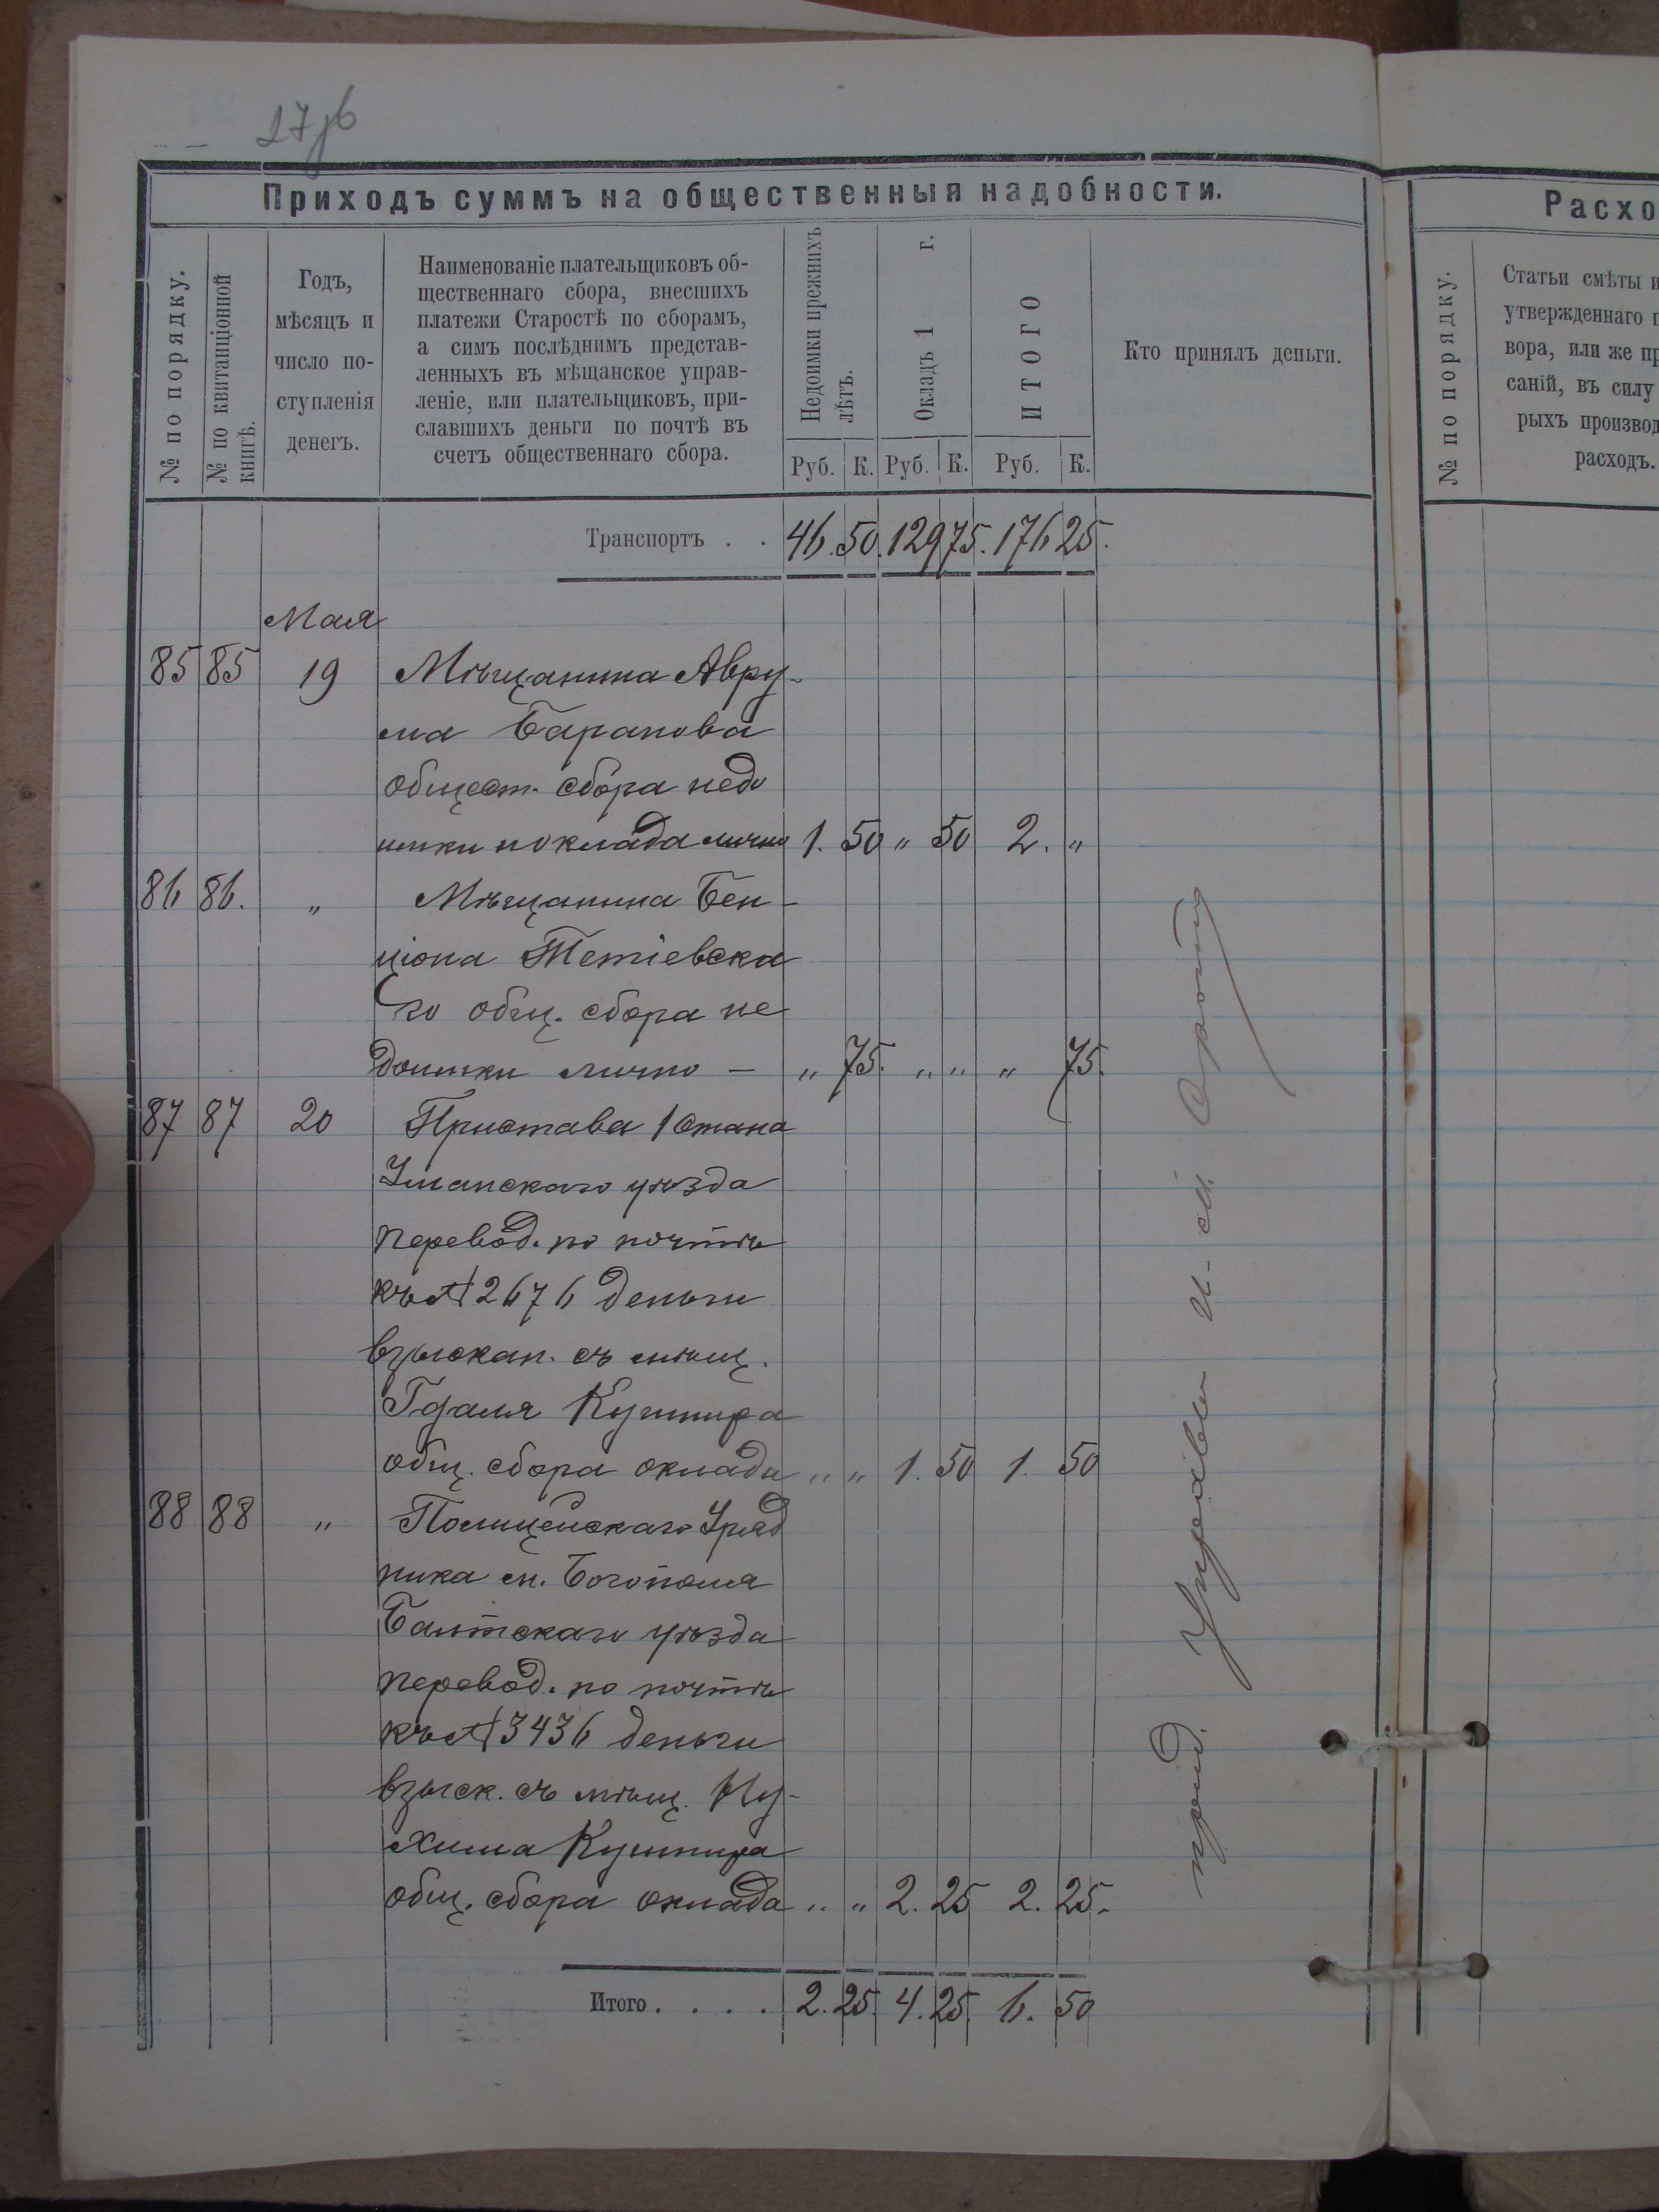 Приходъ суммъ на общественныя надобности.
Расхо
№ по порядку.
№ по квитанціонной
книгѣ.
Годъ,
мѣсяцъ и
число по-
ступленія
денегъ.
Наименованіе плательщиковъ об-
щественнаго сбора, внесшихъ
платежи Старостѣ по сборамъ,
а симъ послѣднимъ представ-
ленныхъ въ мѣщанское управ-
леніе, или плательщиковъ, при-
славшихъ деньги по почтѣ въ
счетъ общественнаго сбора.
Недоимки прежнихъ
лѣтъ.
Окладъ 1 г.
ИТОГО
Руб. К. Руб. К. Руб. К.
Кто принялъ деньги.
№ по порядку.
Статьи смѣты и
утвержденнаго п
вора, или же пр
саній, въ силу
рыхъ производ
расходъ.
Транспортъ . . 46. 50. 129 75. 176 25.
Мая
85 85 19 Мѣщанина Авру-
ма Баранова
общест. сбора недо
имки и оклада лично 1. 50 " 50 2. "
86 86. " Мѣщанина Бен-
ціона Тетіевска
го общ. сбора не
доимки лично — " 75. " " " 75.
87 87 20 Пристава 1 стана
Уманскаго уѣзда
перевод. по почтѣ
къ № 2676 деньги
взыскан. съ мѣщ.
Гдаля Кушнира
общ. сбора оклада " " 1. 50 1. 50
88 88 " Полицейскаго Уряд
ника м. Богополя
Балтскаго уѣзда
перевод. по почтѣ
къ № 3436 деньги
взыск. съ мѣщ. Ну-
хима Кушнира
общ. сбора оклада " " 2. 25 2. 25.
Итого . . . . 2. 25. 4. 25. 6. 50